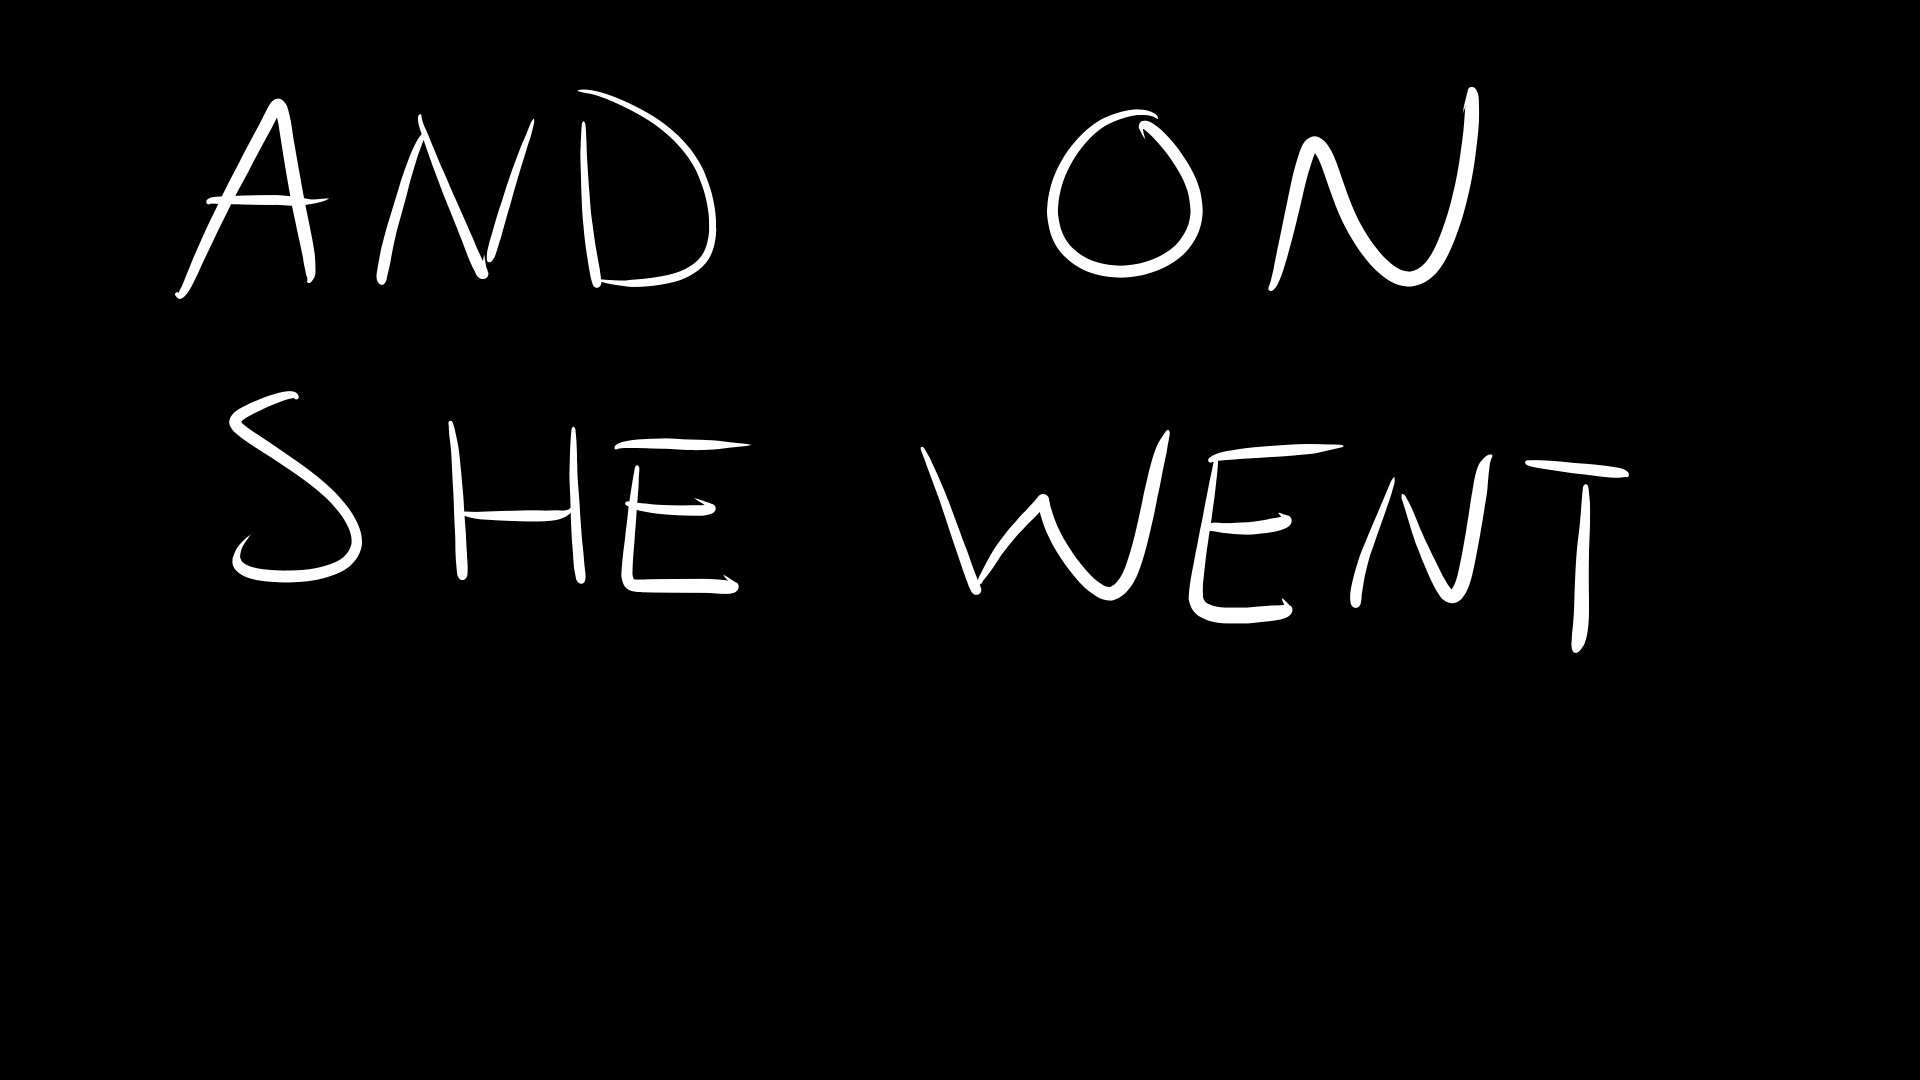 AND ON
SHE WENT